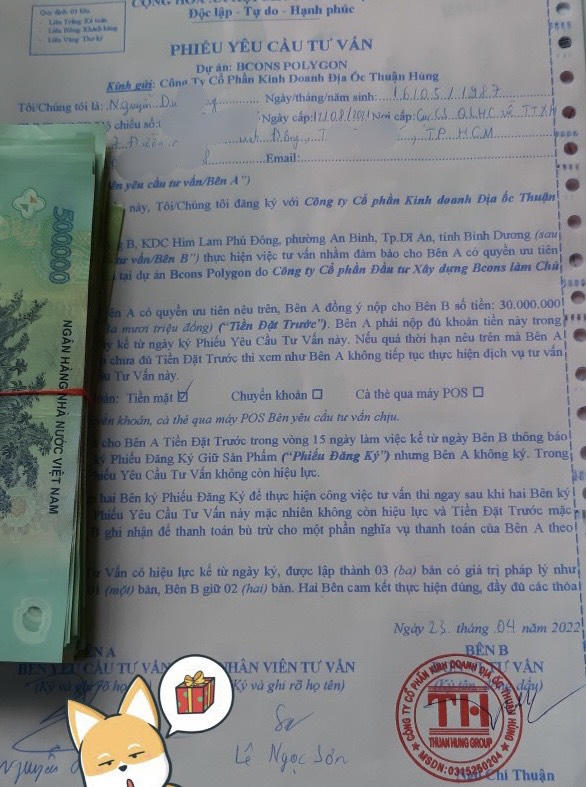 Quy định 03 liên
Liên Trắng Kế toán
Liên Hồng Khách hàng
Liên Vàng Thư ký
Độc lập - Tự do - Hạnh phúc
PHIẾU YÊU CẦU TƯ VẤN
Dự án: BCONS POLYGON
Kính gửi: Công Ty Cổ Phần Kinh Doanh Địa Ốc Thuận Hùng
Tôi/Chúng tôi là: Nguyễn Ngày/tháng/năm sinh: 16/05/1987
chiếu số: Ngày cấp: Nơi cấp: Cục CS QLHC về TTXH
TP. HCM
Email:
yêu cầu tư vấn/Bên A")
này, Tôi/Chúng tôi đăng ký với Công ty Cổ phần Kinh doanh Địa ốc Thuận
B, KDC Him Lam Phú Đông, phường An Bình, Tp.Dĩ An, tỉnh Bình Dương (sau
tư vấn/Bên B") thực hiện việc tư vấn nhằm đảm bảo cho Bên A có quyền ưu tiên
tại dự án Bcons Polygon do Công ty Cổ phần Đầu tư Xây dựng Bcons làm Chủ
A có quyền ưu tiên nêu trên, Bên A đồng ý nộp cho Bên B số tiền: 30.000.000
mươi triệu đồng) ("Tiền Đặt Trước"). Bên A phải nộp đủ khoản tiền này trong
kể từ ngày ký Phiếu Yêu Cầu Tư Vấn này. Nếu quá thời hạn nêu trên mà Bên A
chưa đủ Tiền Đặt Trước thì xem như Bên A không tiếp tục thực hiện dịch vụ tư vấn
Tư Vấn này.
Tiền mặt ☑ Chuyển khoản ☐ Cà thẻ qua máy POS ☐
khoản, cà thẻ qua máy POS Bên yêu cầu tư vấn chịu.
cho Bên A Tiền Đặt Trước trong vòng 15 ngày làm việc kể từ ngày Bên B thông báo
Phiếu Đăng Ký Giữ Sản Phẩm ("Phiếu Đăng Ký") nhưng Bên A không ký. Trong
Yêu Cầu Tư Vấn không còn hiệu lực.
hai Bên ký Phiếu Đăng Ký để thực hiện công việc tư vấn thì ngay sau khi hai Bên ký
Phiếu Yêu Cầu Tư Vấn này mặc nhiên không còn hiệu lực và Tiền Đặt Trước mặc
ghi nhận để thanh toán bù trừ cho một phần nghĩa vụ thanh toán của Bên A theo
Vấn có hiệu lực kể từ ngày ký, được lập thành 03 (ba) bản có giá trị pháp lý như
01 (một) bản, Bên B giữ 02 (hai) bản. Hai Bên cam kết thực hiện đúng, đầy đủ các thỏa
Ngày 23 tháng 04 năm 2022
BÊN B
BÊN YÊU CẦU TƯ VẤN NHÂN VIÊN TƯ VẤN TƯ VẤN
(Ký và ghi rõ họ (Ký và ghi rõ họ tên)
Nguyễn Lê Ngọc Sơn
Chí Thuận
CÔNG TY CỔ PHẦN KINH DOANH ĐỊA ỐC THUẬN HÙNG
TH
THUAN HUNG GROUP
MSDN:0315250204
500000
NGÂN HÀNG NHÀ NƯỚC VIỆT NAM